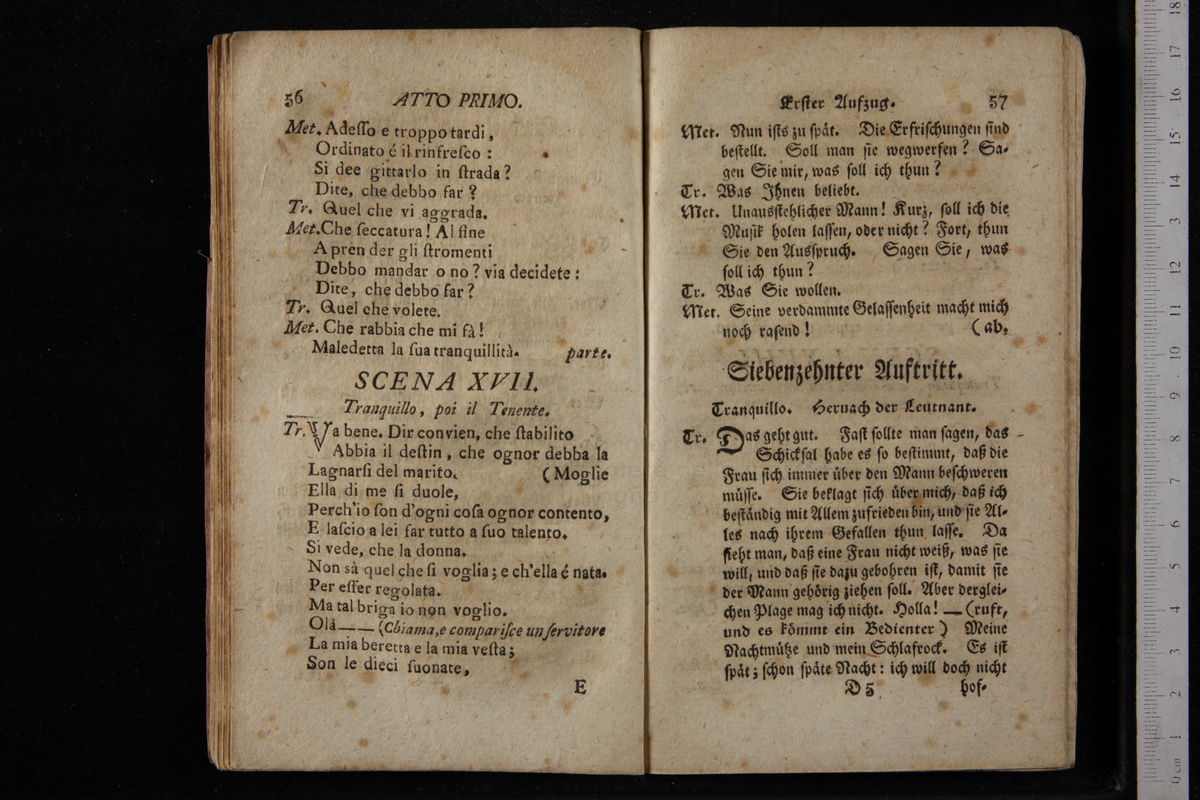 56 ATTO PRIMO.
Met. Adeſſo e troppo tardi,
Ordinato é il rinfreſco :
Si dee gittarlo in ſtrada?
Dite, che debbo far?
Tr. Quel che vi aggrada.
Met. Che ſeccatura! Al fine
A pren der gli ſtromenti
Debbo mandar o no? via decidete :
Dite, che debbo far?
Tr. Quel che volete.
Met. Che rabbia che mi fà!
Maledetta la ſua tranquillità. parte.
SCENA XVII.
Tranquillo, poi il Tenente.
Tr. Va bene. Dir convien, che ſtabilito
Abbia il deſtin, che ognor debba la
Lagnarſi del marito. (Moglie
Ella di me ſi duole,
Perch'io ſon d'ogni coſa ognor contento,
E laſcio a lei far tutto a ſuo talento.
Si vede, che la donna.
Non sà quel che ſi voglia; e ch'ella é nata.
Per eſſer regolata.
Ma tal briga io non voglio.
Olà —— (Chiama, e compariſce un ſervitore
La mia beretta e la mia veſta;
Son le dieci ſuonate,
E
Erſter Aufzug. 57
Met. Nun iſts zu ſpät. Die Erfriſchungen ſind
beſtellt. Soll man ſie wegwerfen? Sa-
gen Sie mir, was ſoll ich thun?
Tr. Was Ihnen beliebt.
Met. Unausſtehlicher Mann! Kurz, ſoll ich die
Muſik holen laſſen, oder nicht? Fort, thun
Sie den Ausſpruch. Sagen Sie, was
ſoll ich thun?
Tr. Was Sie wollen.
Met. Seine verdammte Gelaſſenheit macht mich
noch raſend! (ab,
Siebenzehnter Auftritt.
Tranquillo. Hernach der Leutnant.
Tr. Das geht gut. Faſt ſollte man ſagen, das
Schickſal habe es ſo beſtimmt, daß die
Frau ſich immer über den Mann beſchweren
müſſe. Sie beklagt ſich über mich, daß ich
beſtändig mit Allem zufrieden bin, und ſie Al-
les nach ihrem Gefallen thun laſſe. Da
ſieht man, daß eine Frau nicht weiß, was ſie
will, und daß ſie dazu gebohren iſt, damit ſie
der Mann gehörig ziehen ſoll. Aber derglei-
chen Plage mag ich nicht. Holla! — (ruft,
und es kömmt ein Bedienter) Meine
Nachtmütze und mein Schlafrock. Es iſt
ſpät; ſchon ſpäte Nacht: ich will doch nicht
D 5 hof-
18
17
16
15
14
13
12
11
10
9
8
7
6
5
4
3
2
1
0 cm